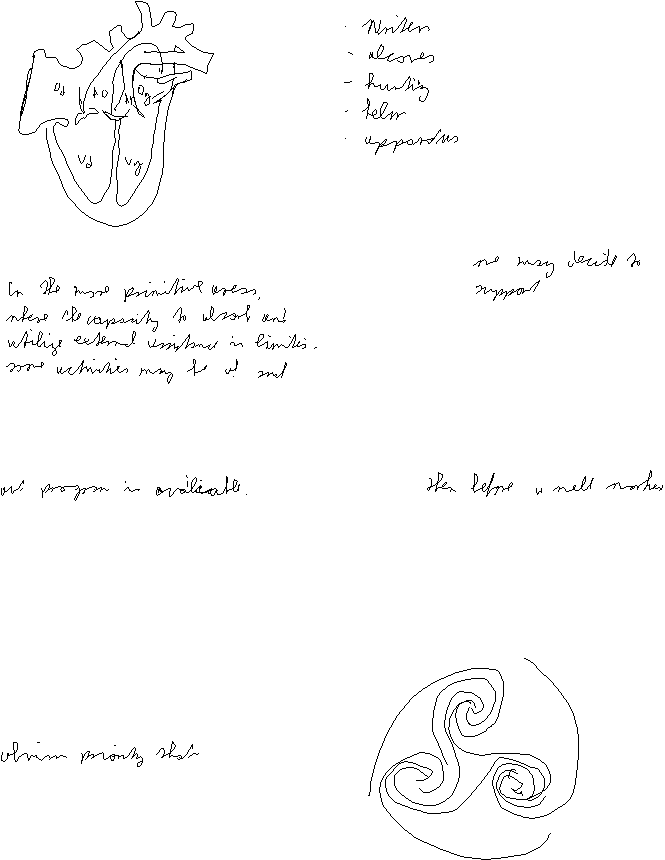 Od
AO
Og
Vd
Vg
- Writers
- alcoves
- hunting
- helm
- apparatus
we may decide to
support
In the more primitive areas,
where the capacity to absorb and
utilize external assistance is limited.
some activities may be of such
our program is available.
then before a well marked
obvious priority that